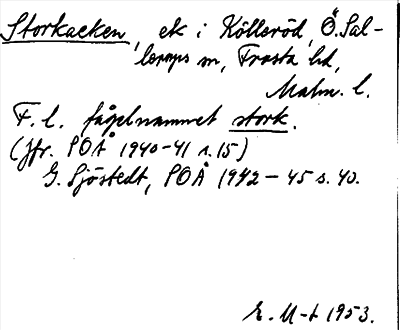 Storkacken, ek i Kölleröd, Ö. Sal-
lerups sn, Frosta hd,
Malm. l.
F. l. fågelnamnet stork.
(Jfr. SOÅ 1940-41 s. 15)
G. Sjöstedt, SOÅ 1942-45 s. 40.
E. M-t 1953.